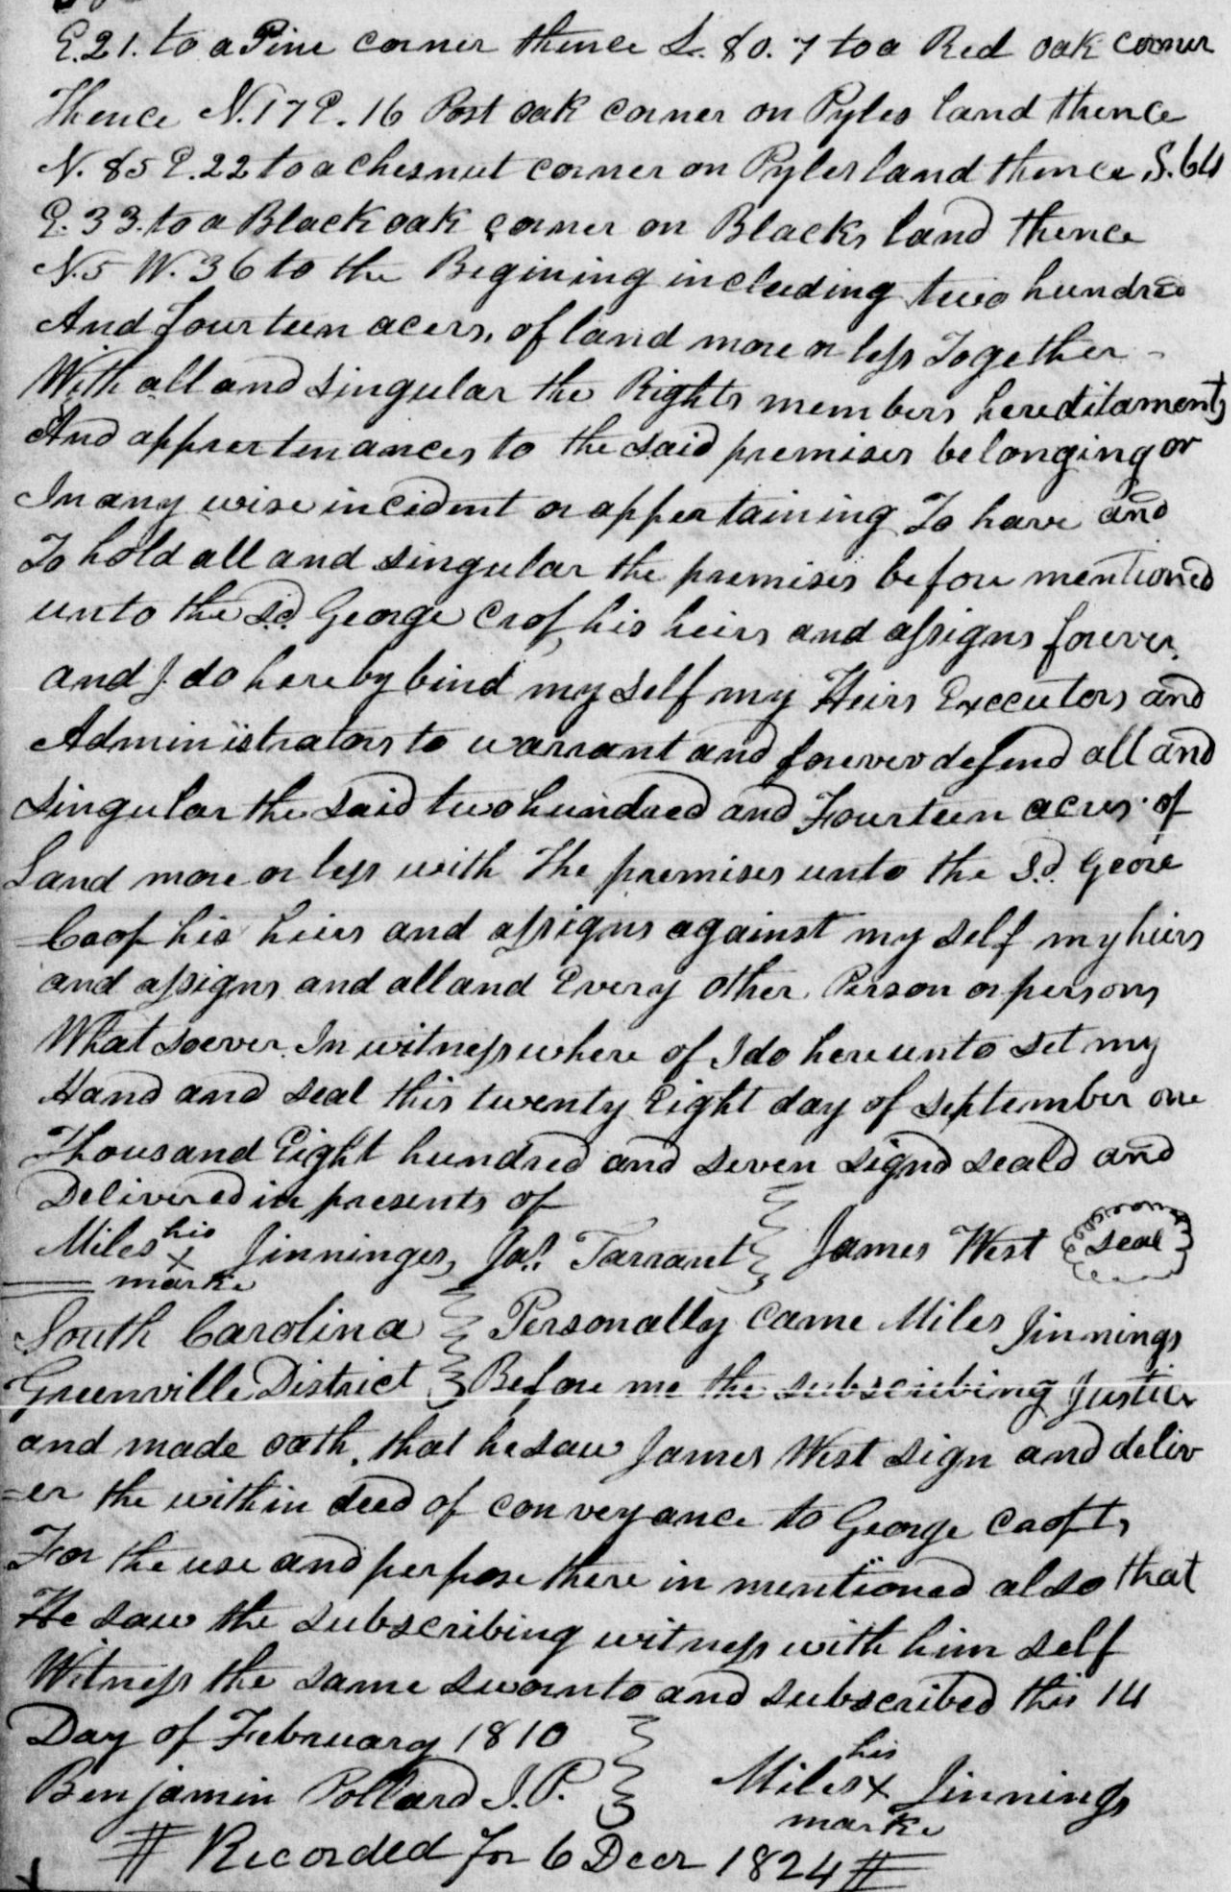 E. 21. to a Pine corner thence S. 80. 7 to a Red oak corner
Thence N. 17 E. 16 Post oak corner on Pyles land thence
N. 85 E. 22 to a chesnut corner on Pyles land thence S. 64
E. 33. to a Black oak corner on Blacks land thence
N. 5 W. 36 to the Begining including two hundred
And fourteen acers, of land more or less Together -
With all and singular the Rights members hereditaments
And apprertenances to the said premises belonging or
In any wise incident or appertaining To have and
To hold all and singular the premises before mentioned
unto the sd. George Crof, his heirs and assigns forever,
and I do hereby bind my self my Heirs Executors and
Administrators to warrant and forever defend all and
singular the said two hundred and Fourteen acres of
Land more or less with the premises unto the Sd. Geore
Croof his heirs and assigns against my self my heirs
and assigns and all and Every other Person or persons
What soever. In witness where of I do hereunto set my
Hand and seal this twenty Eight day of September one
Thousand Eight hundred and seven signd seald and
Delivered in presents of
Miles his x marke Jinninges, Jas. Tarrant } James West seal
South Carolina } Personally came Miles Jinnings
Greenville District } Before me the subscribing Justice
and made oath, that he saw James West sign and deliv
=er the within deed of conveyance to George Croft,
For the use and perpose there in mentioned also that
He saw the subscribing witness with him self
Witness the same sworn to and subscribed this 14
Day of February 1810 }
Benjamin Pollard J.P. } Miles his x marke Jinnings
# Recorded for 6 Decr 1824 #